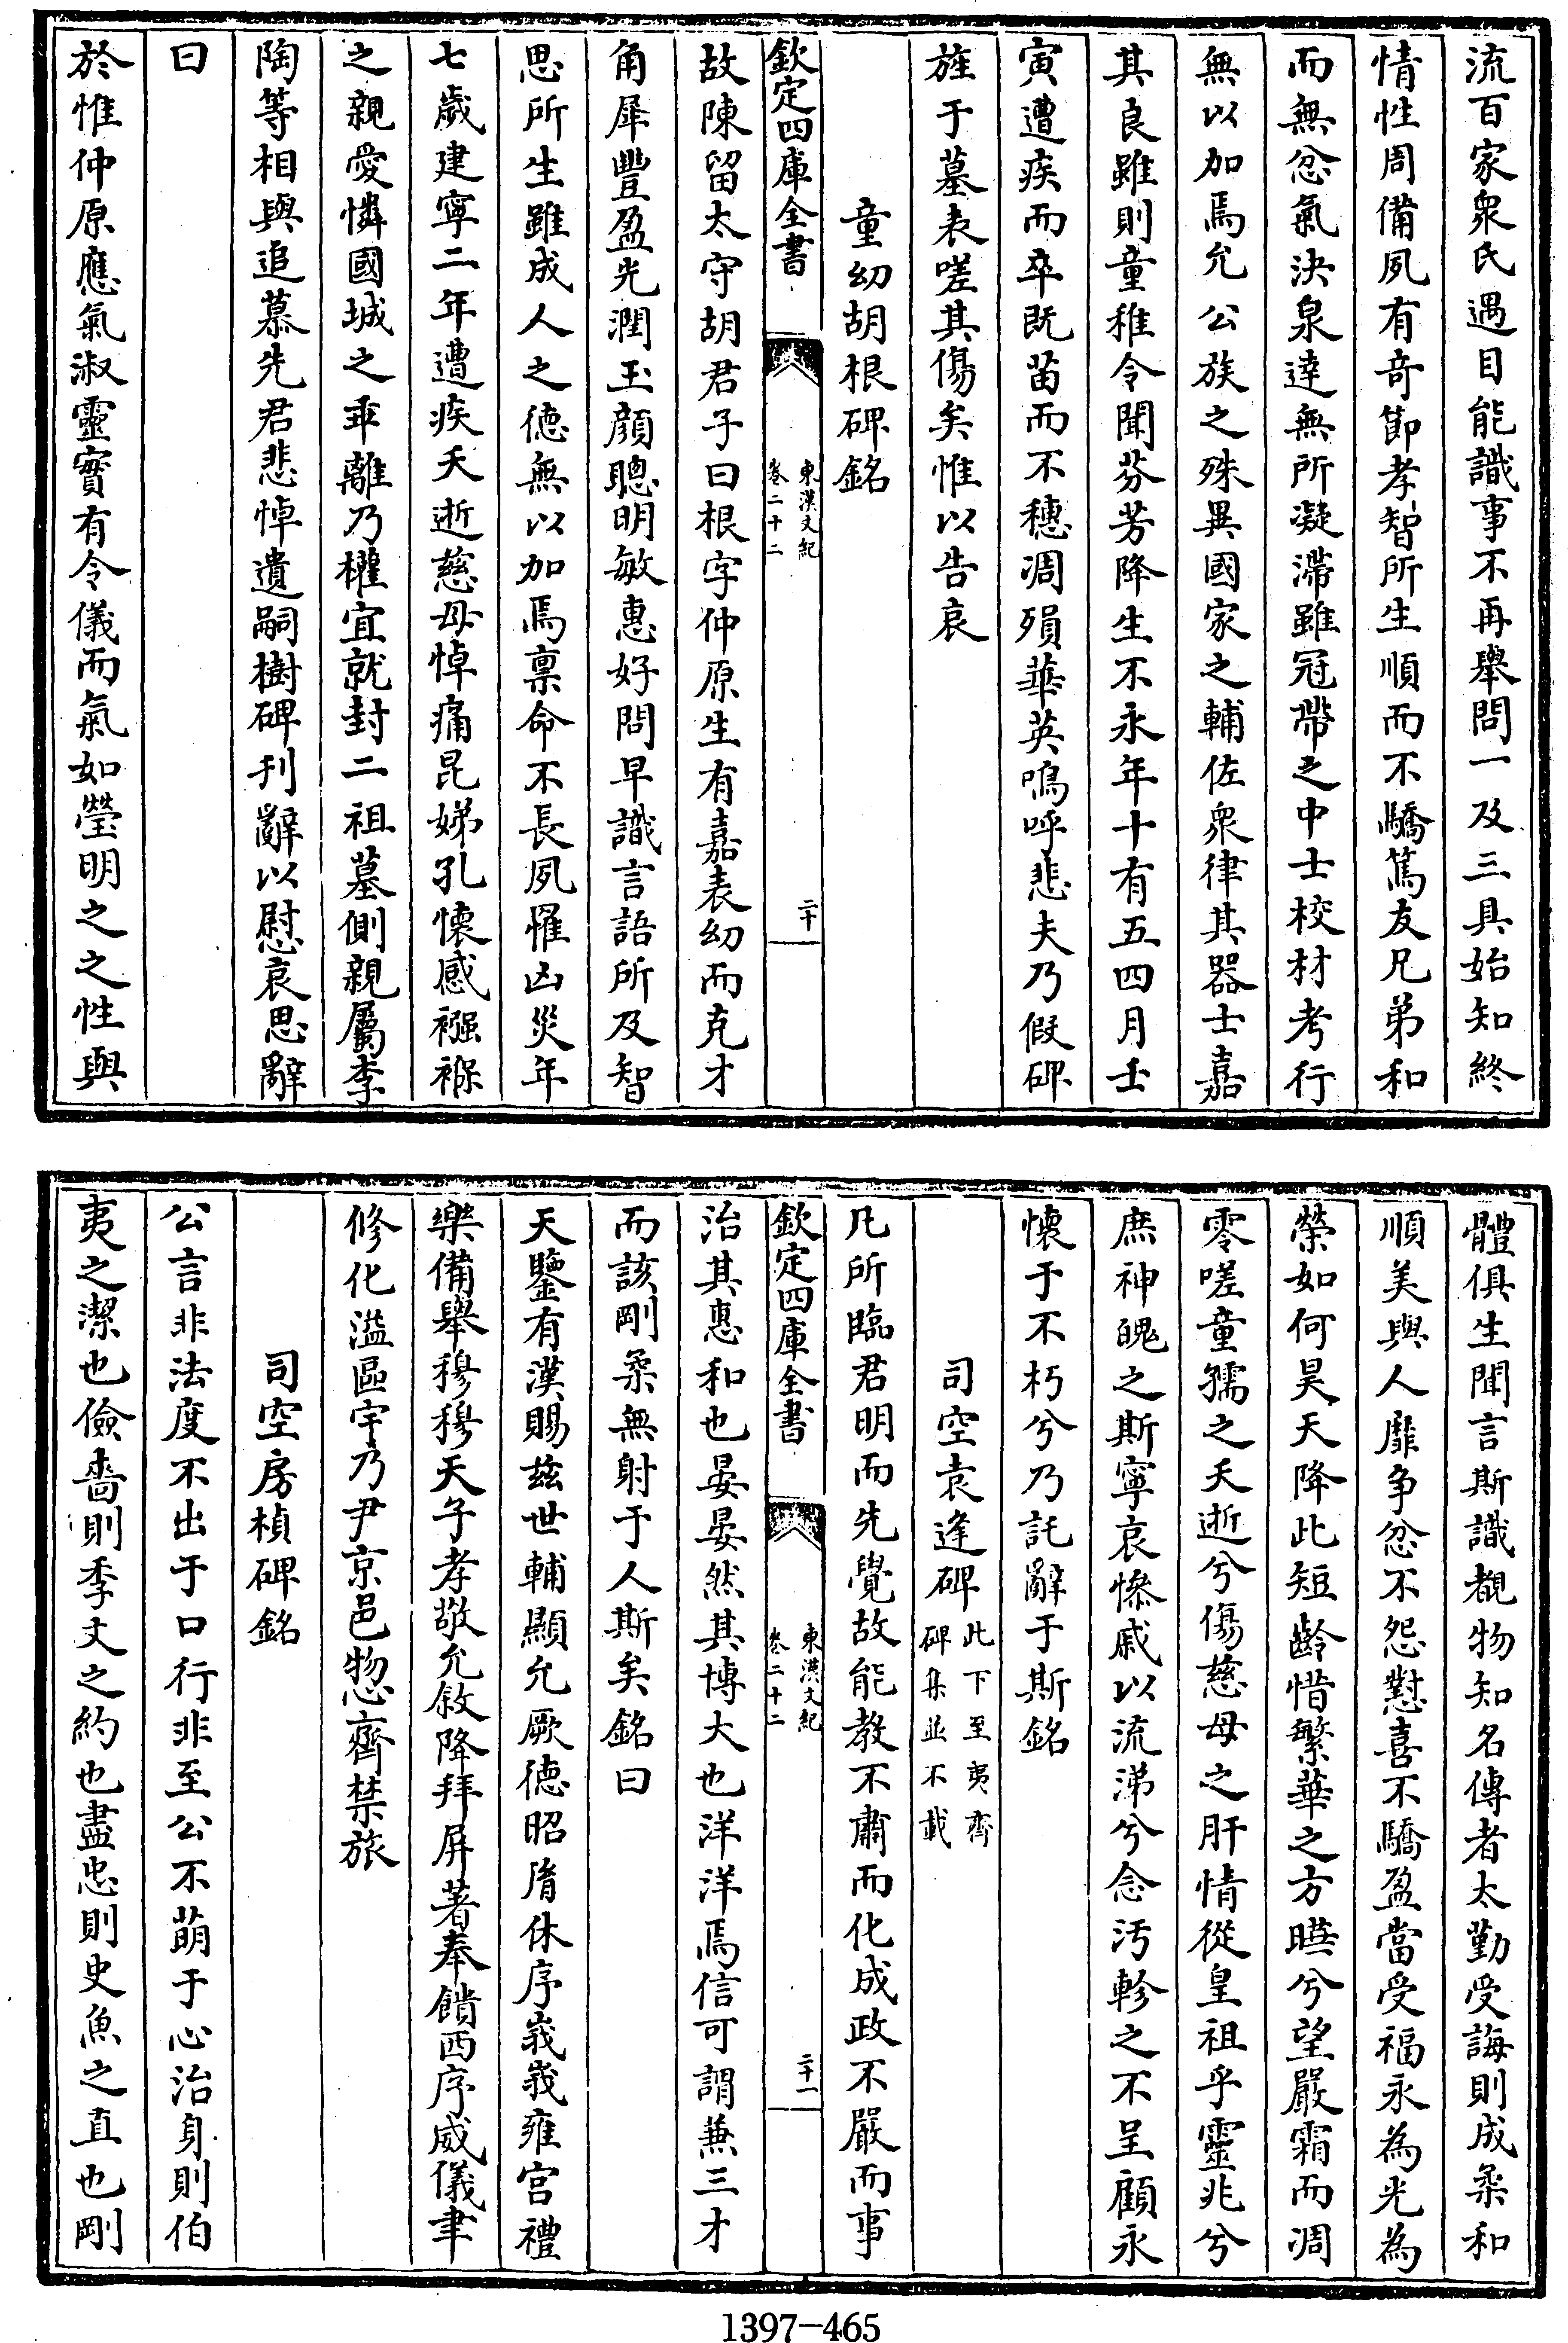 流百家衆氏遇目能識事不再舉問一及三具始知終
情性周備夙有奇節孝智所生順而不驕篤友兄弟和
而無忿氣決泉達無所凝滯雖冠帶之中士校材考行
無以加焉允公族之殊異國家之輔佐衆律其器士嘉
其良雖則童稚令聞芬芳降生不永年十有五四月壬
寅遭疾而卒既苗而不穗凋殞華英嗚呼悲夫乃假碑
旌于墓表嗟其傷矣惟以告哀
童幼胡根碑銘
欽定四庫全書
東漢文紀
卷二十二
二十
故陳留太守胡君子曰根字仲原生有嘉表幼而克才
角犀豐盈光潤玉顔聰明敏惠好問早識言語所及智
思所生雖成人之德無以加焉禀命不長夙罹凶災年
七歲建寧二年遭疾夭逝慈母悼痛昆娣孔懷感襁褓
之親愛憐國城之乖離乃權宜就封二祖墓側親屬李
陶等相與追慕先君悲悼遺嗣樹碑刋辭以慰哀思辭
曰
於惟仲原應氣淑靈實有令儀而氣如瑩明之之性與
體俱生聞言斯識覩物知名傳者太勤受誨則成柔和
順美與人靡争忿不怨懟喜不驕盈當受福永為光為
榮如何昊天降此短齡惜繁華之方曄兮望嚴霜而凋
零嗟童孺之夭逝兮傷慈母之肝情從皇祖乎靈兆兮
庶神魄之斯寧哀慘戚以流涕兮念污軫之不呈顧永
懷于不朽兮乃託辭于斯銘
司空袁逢碑此下至夷齊
碑集並不載
凡所臨君明而先覺故能教不肅而化成政不嚴而事
欽定四庫全書
東漢文紀
卷二十二
二十一
治其惠和也晏晏然其博大也洋洋焉信可謂兼三才
而該剛柔無射于人斯矣銘曰
天鑒有漢賜兹世輔顯允厥德昭胤休序峩峩雍宫禮
樂備舉穆穆天子孝敬允敘降拜屏著奉饋西序威儀聿
修化溢區宇乃尹京邑惣齊禁旅
司空房楨碑銘
公言非法度不出于口行非至公不萌于心治身則伯
夷之潔也儉嗇則季文之約也盡忠則史魚之直也剛
1397-465